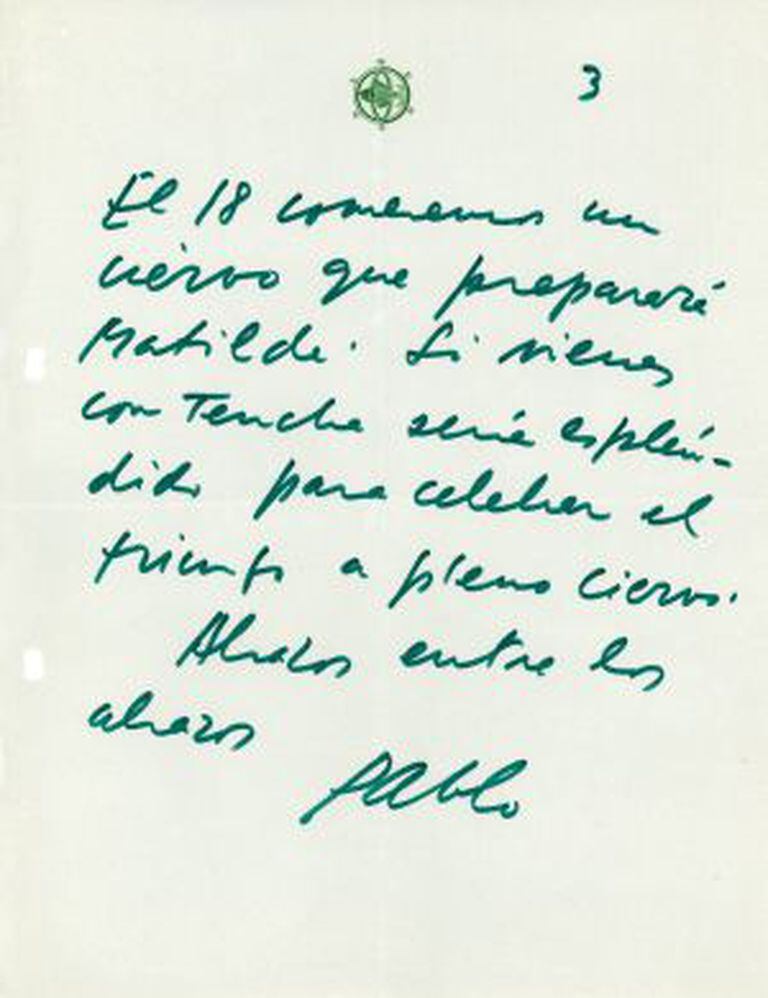 3
El 18 comeremos un
ciervo que preparará
Matilde. Si vienes
con Tencha sería esplén-
dido para celebrar el
triunfo a pleno ciervo.
Abrazos entre los
abrazos
Pablo